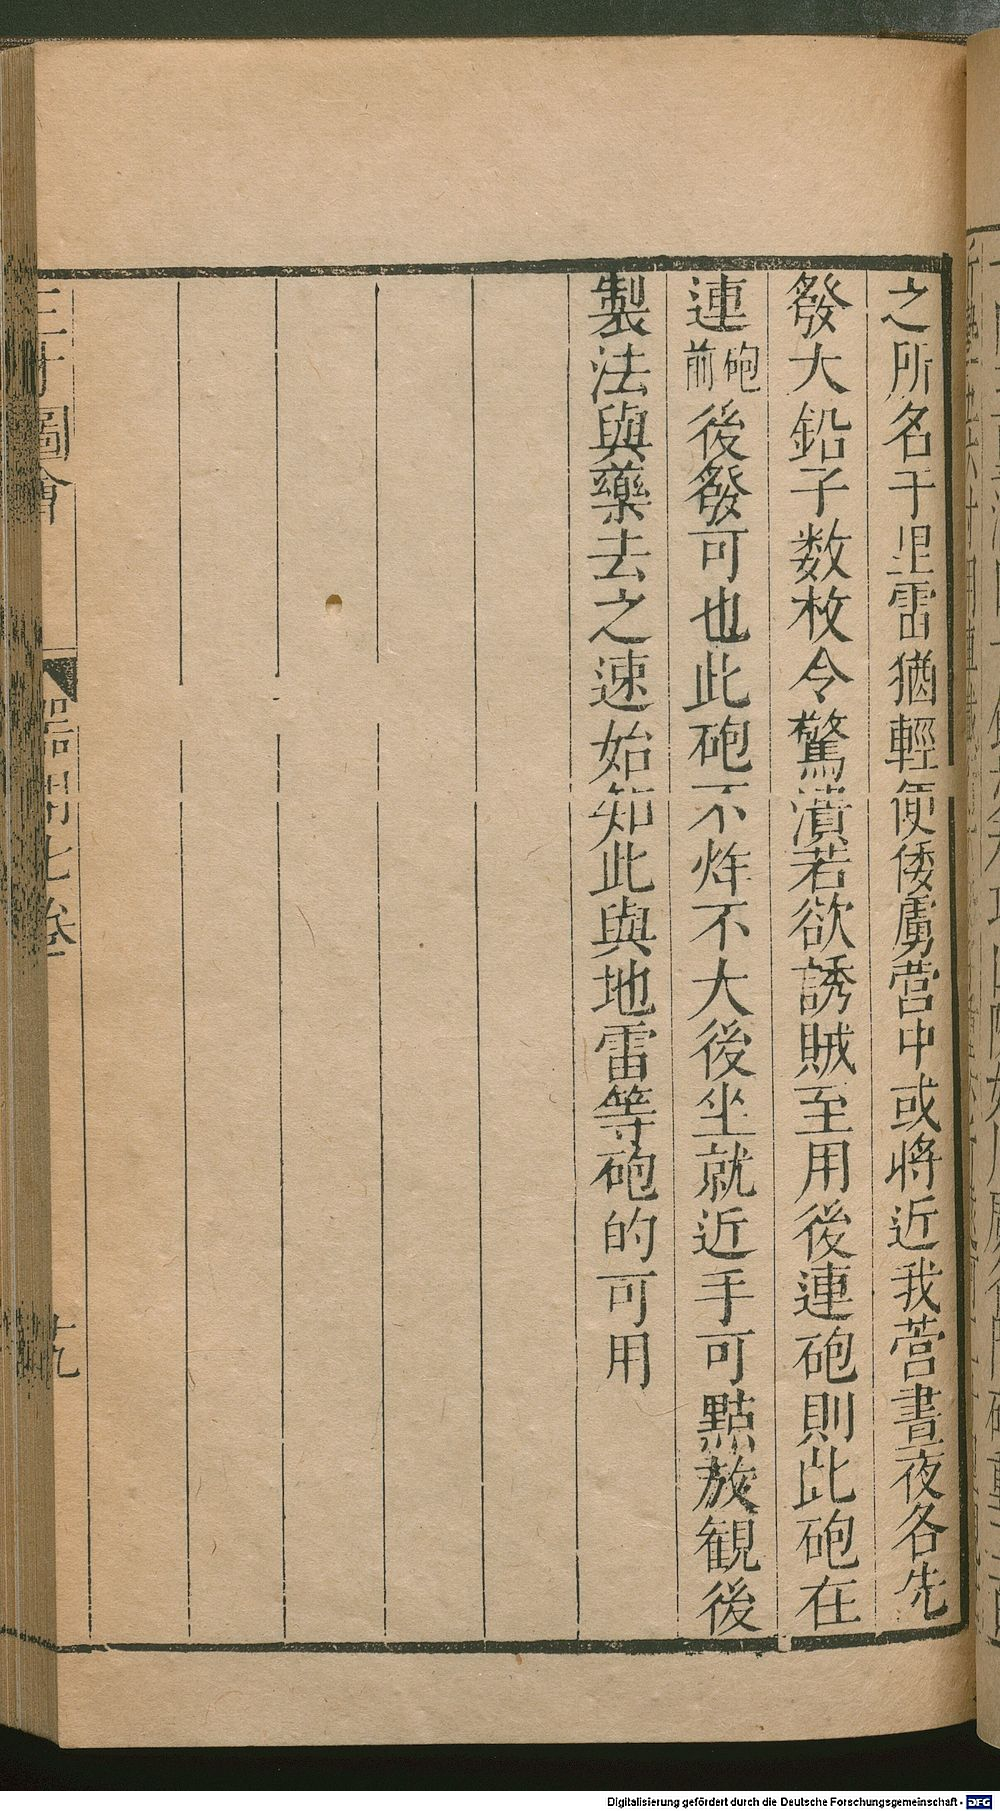 之所名千里雷猶輕便倭虜营中或將近我营晝夜各先
發大鉛子数枚令驚潰若欲誘賊至用後連砲則此砲在
連砲前後發可也此砲不炸不大後坐就近手可點放観後
製法與藥去之速始知此與地雷等砲的可用
三才圖會
器用七卷
廿九
Digitalisierung gefördert durch die Deutsche Forschungsgemeinschaft - DFG